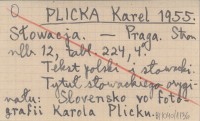 PLICKA Karel 1955.
Słowacja. — Praga. Stron
nlb. 12, tabl. 224, 4°.
Tekst polski i słowacki.
Tytuł słowackiego orygi-
nału: Slovensko vo foto-
grafii Karola Plicku.